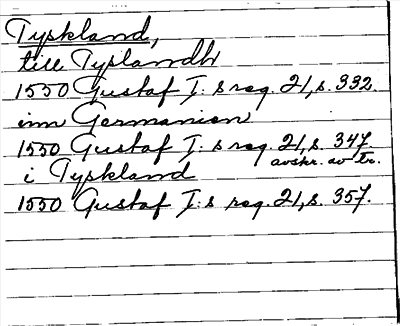 Tyskland,
till Tyslandh
1550 Gustaf I: s reg. 21, s. 332.
inn Germanien
1550 Gustaf I: s reg. 21, s. 347.
avskr. av tr.
i Tyskland
1550 Gustaf I: s reg. 21, s. 357.